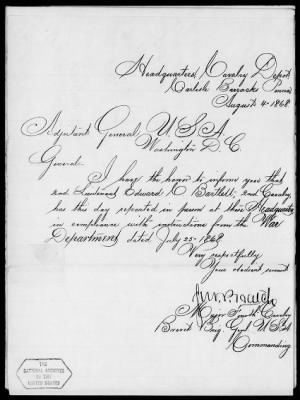 Headquarters Cavalry Depot
Carlisle Barracks Penna
August 4. 1868.
Adjutant General, U.S.A.
Washington D.C.
General.
I have the honor to inform you that
2nd Lieutenant Edward C. Bartlett, 2nd Cavalry
has this day reported in person at these Headquarters
in compliance with instructions from the War
Department, dated July 25th 1868.
Very respectfully
Your obedient servant
Major Fourth Cavalry
Brevet Brig Genl U.S.A
Commanding
THE
NATIONAL ARCHIVES
OF THE
UNITED STATES